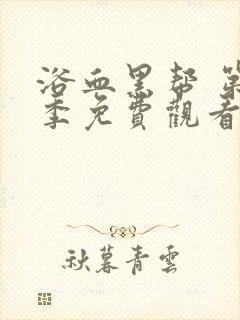 浴血黑帮 第
季免費觀看
秋暮青雲